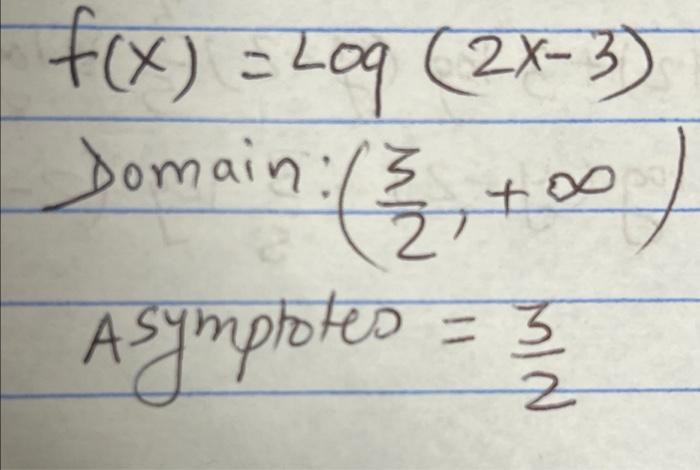 f(x) = Log (2x-3)
Domain: (3/2, +∞)
Asymptotes = 3/2